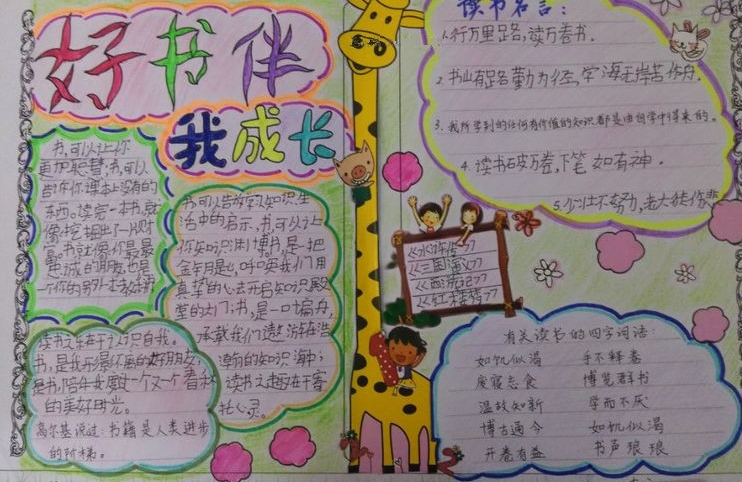 好书伴
我成长
书,可以让你
更加聪慧;书,可以
告诉你课本上没有的
东西。读完一本书,就
像挖掘出了一片财
富。书就像你最最
忠诚的朋友,也是
书,可以告诉你学习知识,生
活中的启示,书,可以让
你知识渊博。书,是一把
金钥匙,呼唤我们用
真挚的心去开启知识殿
堂的大门;书,是一叶扁舟,
承载我们遨游在浩
瀚的知识海中;
读书之趣在于寄
托心灵。
读书之乐在于认识自我。
书,是我形影不离的好朋友,
是书,陪伴我度过一个又一个春秋
的美好时光。
高尔基说过:书籍是人类进步
的阶梯。
读书名言:
1.行万里路,读万卷书。
2.书山有路勤为径,学海无崖苦作舟。
3.我所学到的任何有价值的知识都是由自学中得来的。
4.读书破万卷,下笔如有神。
5.少壮不努力,老大徒伤悲
《水浒传》
《三国演义》
《西游记》
《红楼梦》
有关读书的四字词语:
如饥似渴 手不释卷
废寝忘食 博览群书
温故知新 学而不厌
博古通今 如饥似渴
开卷有益 书声琅琅